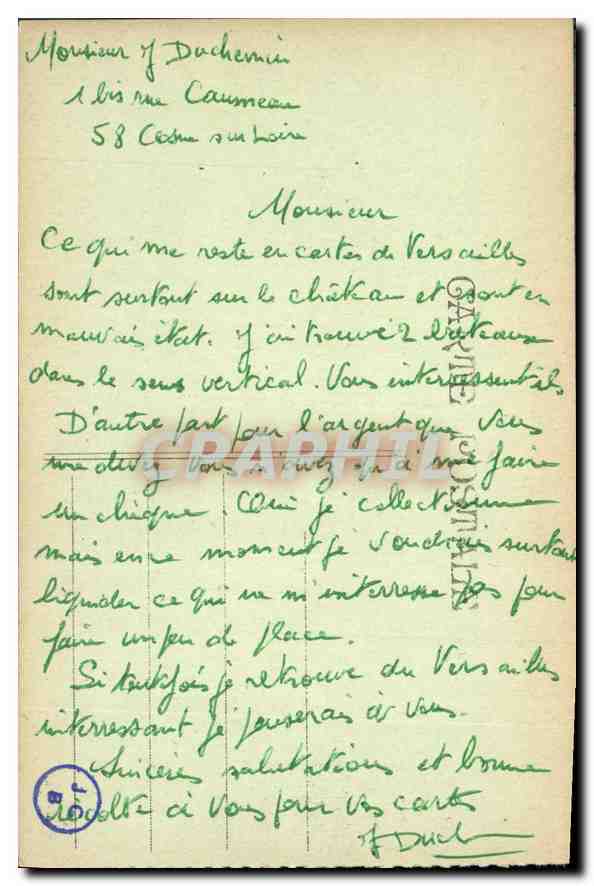 Monsieur J Duchemin
1 bis rue
58 Cosne sur Loire
Monsieur
Ce qui me reste en cartes de Versailles
sont surtout sur le château et sont en
mauvais état. J'ai trouvé 2 bateaux
dans le sens vertical. Vous interressent ils
D'autre part pour l'argent que vous
me devez vous n'avez qu'à me faire
un chèque. Oui je collectionne
mais en ce moment je voudrais surtout
liquider ce qui ne m'interresse pas pour
faire un peu de place.
Si toutefois je retrouve du Versailles
interressant je penserais à vous.
Sincères salutations et bonne
récolte à vous pour vos cartes
J Duch
CARTE POSTALE
CPAPHIL
J.C
B